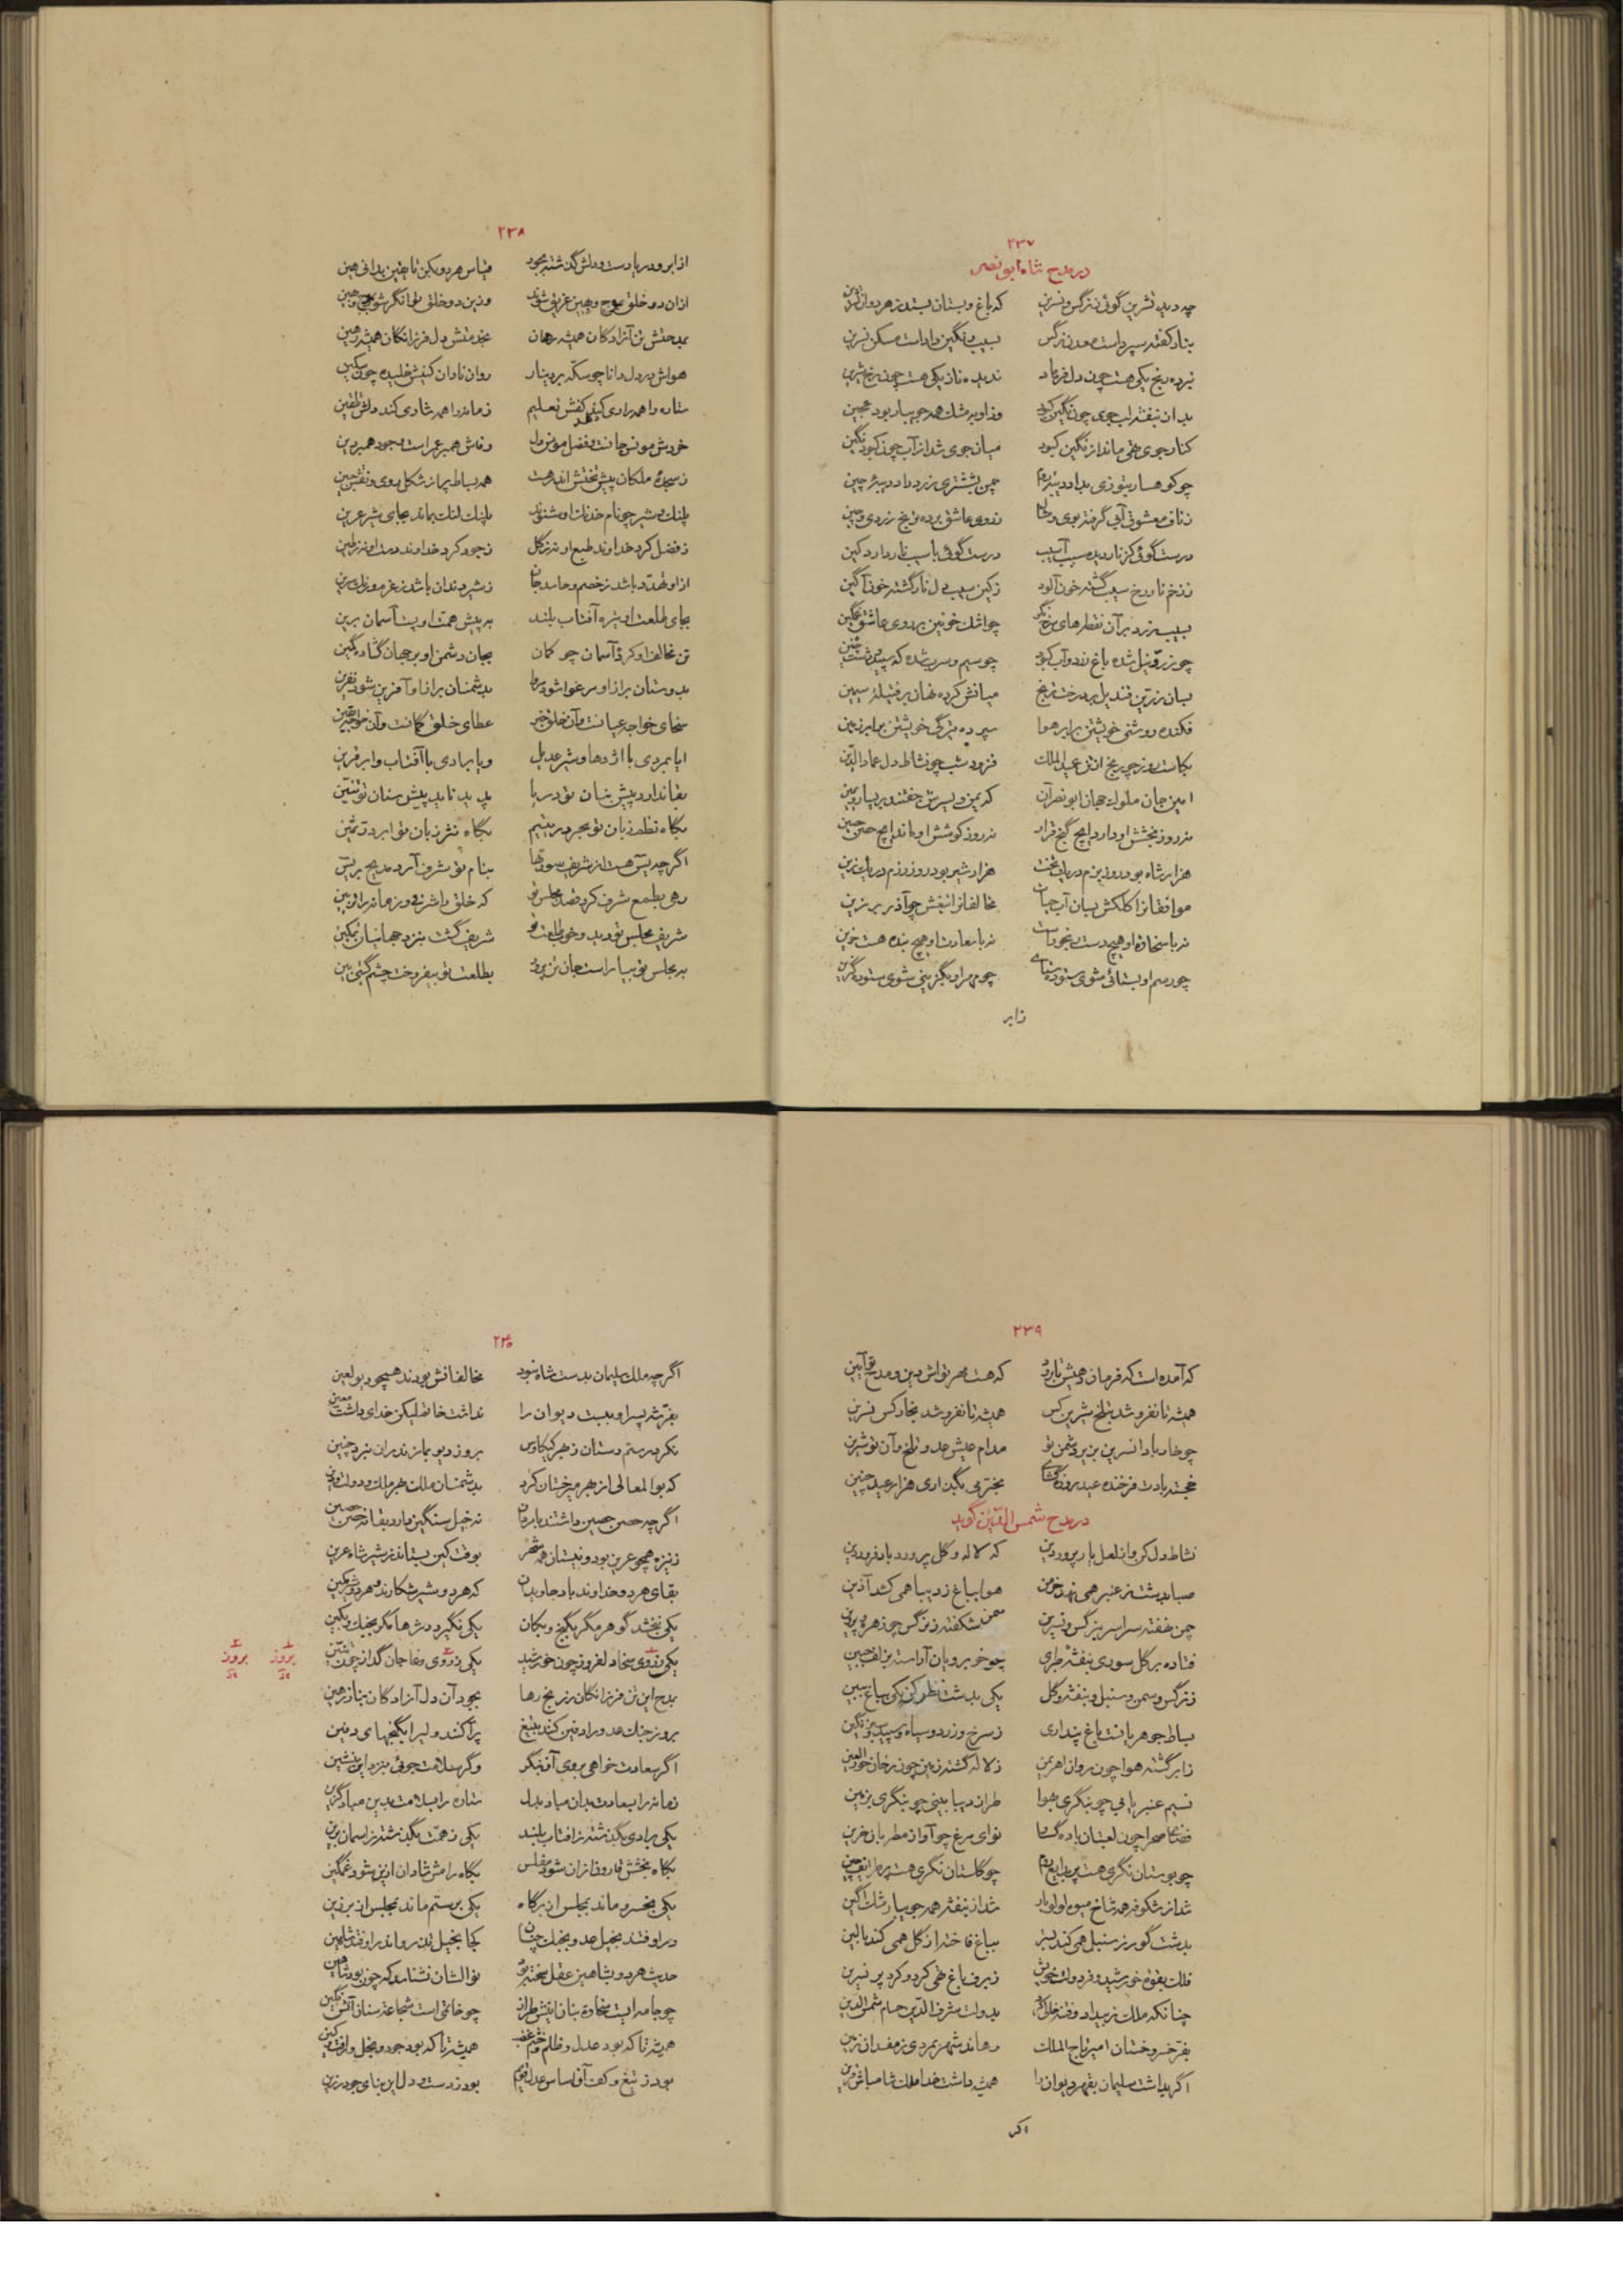 ۲۳۷
در مدح شاه ابو نصر
چه دید تشرین گوئی ز نرگس و نسرین که باغ و بستان بستد ز هر دوان
بنار کفته سپرده است معدن نرگس بسیب رنگین داداست مسکن نسرین
نبرده رنج یکی هست چون دل فرهاد ندیده ناز یکی هست چون رخ شیرین
بدان بنفشه لب جوی چون نگین کبود
کنار جوی تهی ماند از نگین کبود میان جوی شد از آب چون کبود نگین
چو کوهسار بتوزی بداد چمن بششتری زرد داد دیبه چین
ز ناف معشوق آبی گرفته بوی و ز روی عاشق برده ترنج زردی و چین
درست گوئی کز نار دیده سیب آسیب درست گوئی با سیب نار دارد کین
ز زخم نار رخ سیب گشته خون آلود ز کین سیب دل نار گشته خون آگین
بسیب زرد بر آن نقطه‌های سرخ نگر چو اشک خونین بر روی عاشق غمگین
چو زر و نیل شده باغ زرد و آب کبود چو سیم و سرب شده که سپید و دشت
بسان زرین قندیل بر درخت ترنج میانش کرده نهان بر فتیلهٔ سیمین
فکنده روشنی خویشتن برابر هوا سپرده تیرگی خویشتن برابر زمین
بکاست روز چو رنج از تن عمید الملک فزود شب چو نشاط دل عماد الدین
امین جان ملوک جهان ابو نصر آن که یمن و یسرش جفتند بر یسار و یمین
نه روز بخشش او دارد ایچ گنج قرار نه روز کوشش او ماند ایچ حصن حصین
هزار شاه بود روز بزم در یک تخت هزار شیر بود روز رزم در یک زین
موافقانرا کلکش بسان آب حیات مخالفانرا تیغش چو آذر برزین
نه با سخاوت او هیچ دست رنجور است نه با سعادت او هیچ بنده هست حزین
چو رسم او بستائی شوی ستوده ستای چو مهر او بگزینی شوی ستوده گزین
ز ابر
۲۳۸
از ابر و دریا دست و دلش گذشته بجود قیاس هر دو بکن تا یقین بدانی هین
ازان دو خلق
بمدحتش تن آزادکان همیشه رهان بخدمتش دل فرزانکان همیشه رهین
هواش در دل دانا چو سکه بر دینار روان نادان کینش خلیده چون سکین
ستاره را همه رادی کند کفش تعلیم زمانه را همه شادی کند دلش تلقین
خردش مونس جانست و فضل مونس دل وفاش همبر عمر است و جود همبر دین
ز سجدهٔ ملکان پیش تختش اندر هست همه بساط پر از شکل روی و نقش جبین
پلنگ و شیر چو نام خدنگ او شنوند پلنگ لنگ بماند بجای شیر عرین
ز فضل کرد خداوند طبع او نه ز گل ز جود کرد خداوند دست او نه ز طین
بجای طلعت او تیره آفتاب بلند به پیش همت او پست آسمان برین
تن مخالف او کرد آسمان چو کمان بجان دشمن او بر جهان گشاده کمین
بدوستان بر ازو مرغوا شود مروا بدشمنان بر ازو آفرین شود نفرین
سخای خواجه عیانست و آن خلق خبر عطای خلق گمانست و آن خواجه یقین
ایا بمردی با اژدها و شیر عدیل و یا برادی با آفتاب و ابر قرین
بقا ندارد پیش بنان تو دریا پدید ناید پیش سنان تو تنین
بگاه نظم زبان تو بحر در یتیم بگاه نثر بنان تو ابر در ثمین
اگر چه پیش هست از شریف سورتها بنام تو شرف آرد مدیح
رهی بطمع شرف کرد قصد مجلس تو که خلق را شرفی و زمانه را
شریف مجلس تو دید و خوب طلعت تو شریف گشت بنزد جهانیان و مکین
به مجلس تو بیاراست جان تن پرور بطلعت تو بیفروخت چشم گیتی بین
۲۳۹
که آمده است که فرمان دهیش که هست مهر تو اش دین و مدح تو آیین
همیشه تا نفروشد بتلخ شیرین کس همیشه تا نفروشد بخار کس نسرین
چو خار بادا نسرین بزیر دشمن تو مدام عیش عدو تلخ و آن تو شیرین
خجسته بادت فرخنده عید روزه گشای بخرمی بگذاری هزار عید چنین
در مدح شمس الدین گوید
نشاط دل کن و از لعل یار پرور دین که لاله و گل پرورد باد فروردین
صبا بدشت ز عنبر همی نهد خرمن هوا بباغ ز دیبا همی کشد آذین
چمن نهفته سراسر بنرگس و نسرین سمن شکفته ز نرگس چو زهره و پروین
فتاده بر گل سوری بنفشهٔ طبری چو خوبرویان آراسته بزلف جبین
ز نرگس و سمن و سنبل و بنفشه و گل یکی بدشت نظر کن یکی بباغ ببین
بساط جوهریانست باغ پنداری ز سرخ و زرد و سیاه و سپید و سبز نگین
ز ابر گشته هوا چون روان اهریمن ز لاله گشته زمین چون رخان حور العین
نسیم عنبر یابی چو بنگری بهوا طراز دیبا بینی چو بنگری بزمین
فضای صحرا چون لعبتان باده گسار نوای مرغ چو آواز مطربان حزین
چو بوستان نگری هست پر بدایع روم چو گلستان نگری هست پر طرایف چین
شد از شکوفه همه شاخ میوه لؤلؤ بار شد از بنفشه همه جویبار مشک آگین
بدشت گور ز سنبل همی کند بستر بباغ فاخته از گل همی کند بالین
فلک بقوت خورشید و فر دولت خویش ز برف باغ تهی کرد و کرد پر نسرین
چنانکه ملک ز بیداد و فتنه خالی کرد بدولت شرف الدین حسام شمس الدین
بفر خسرو خشان امیر تاج الملک رهاند شهر بمردی ز مفسدان زمین
اگر بداشت سلیمان بقهر دیوان را همیشه داشت خدا ملک
اگر
۲۴۰
اگر چه ملک سلیمان بدست شاه نبود مخالفانش بودند همچو دیو لعین
بفر شه پسر او ببست دیوان را نداشت خاتم لیکن خدای داشت معین
نکرد رستم دستان ز بهر کیکاوس بروز دیو بمازندران نبرد چنین
که بوالمعالی از بهر میر خشان کرد بدشمنان ملک بهر ملک و دولت و دین
اگر چه حصن حصین داشتند نه خیل سنگین
ز نیزه همچو عرین بود و نیستان همه شهر بوقت کین بستاند ز شیر شاه عرین
بقای هر دو خداوند باد جاویدان که هر دو شیر شکارند و هر دو شیر کمین
یکی نبخشد گوهر مگر بگنج و بکان یکی نگیرد دشمن مگر بجنگ و بکین
یکی بروی سخا دلفروز چون خورشید یکی بروی وغا جان گداز چون تنین
بمدح این تن فرزانگان ز رنج رها بجود آن دل آزادگان بناز رهین
بروز جنگ عدو را دفین کند بتیغ پراکند ولی را بگنجهای دفین
اگر سعادت خواهی بروی آن بنگر وگر سلامت جوئی بنزد این بنشین
زمانه را بسعادت بدان مباد بدل ستاره را بسلامت بدین مباد گزین
یکی برادی بگذشته ز آفتاب بلند یکی ز همت بگذشته ز آسمان برین
بگاه بخشش قارون ازان شود مفلس بگاه رامش شادان ازین شود غمگین
یکی بخسرو ماند بمجلس از بر گاه یکی برستم ماند بمجلس از بر زین
در اوفتند بخیل عدو بجنگ چنان کجا بخیل تذروان در اوفتد شاهین
حدیث هر دو بشاهین عقل سخته بود
چو جامه ایست سخاوت بنان اینش طراز چو خاتمی است شجاعت سنان آنش نگین
همیشه تا که بود عدل و ظلم و همیشه تا که بود جود و بخل و
بود ز تیغ و کف آن اساس عدل قویم بود ز دست و دل این بنای جود رزین
بروز بروز